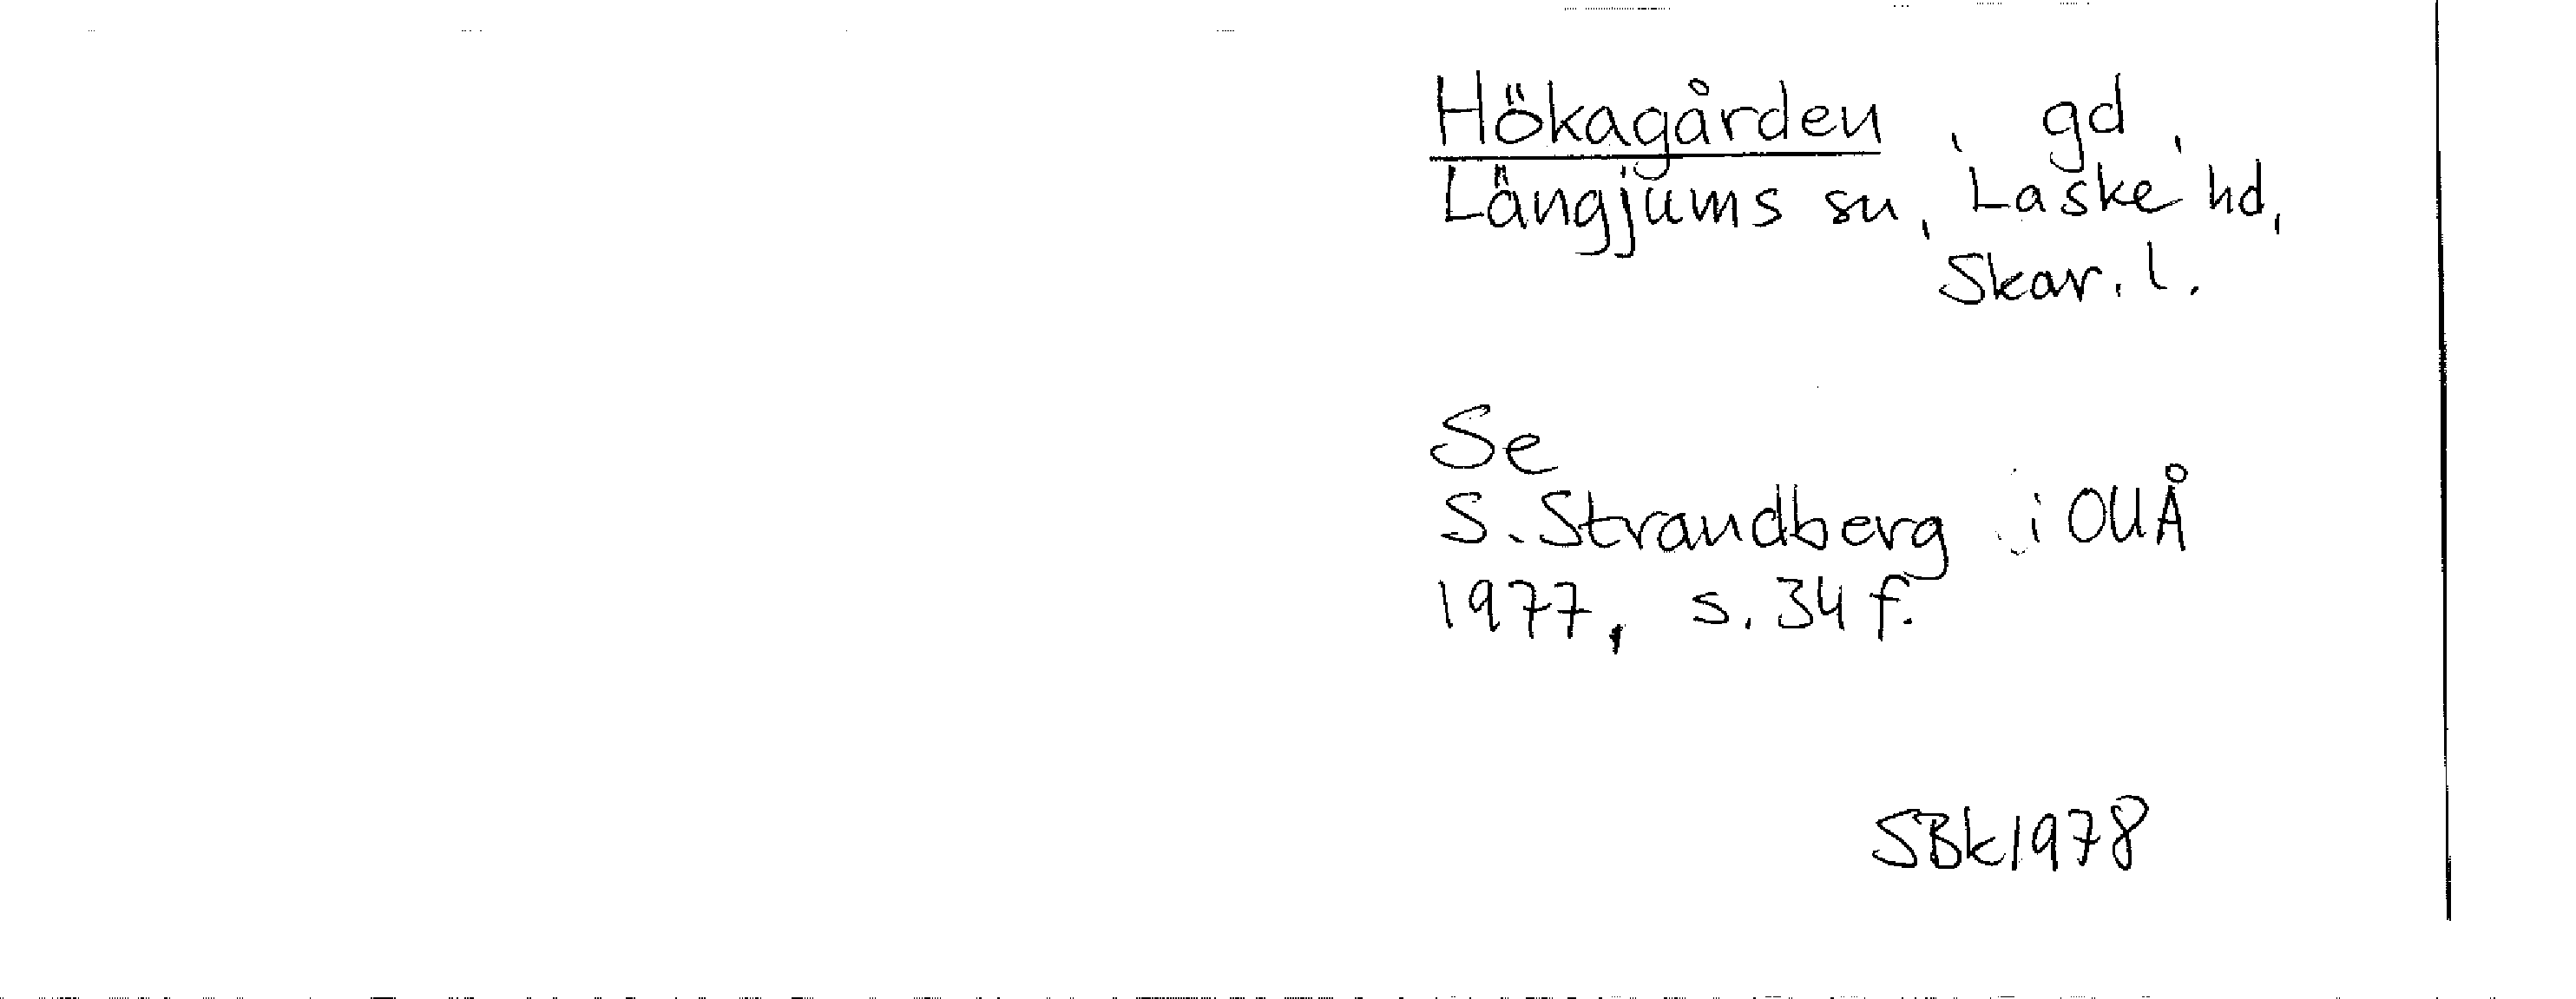 Hökagården, gd,
Längjums sn, Laske hd,
Skar. l.
Se
S. Strandberg i OUÅ
1977, s. 34 f.
SBk 1978